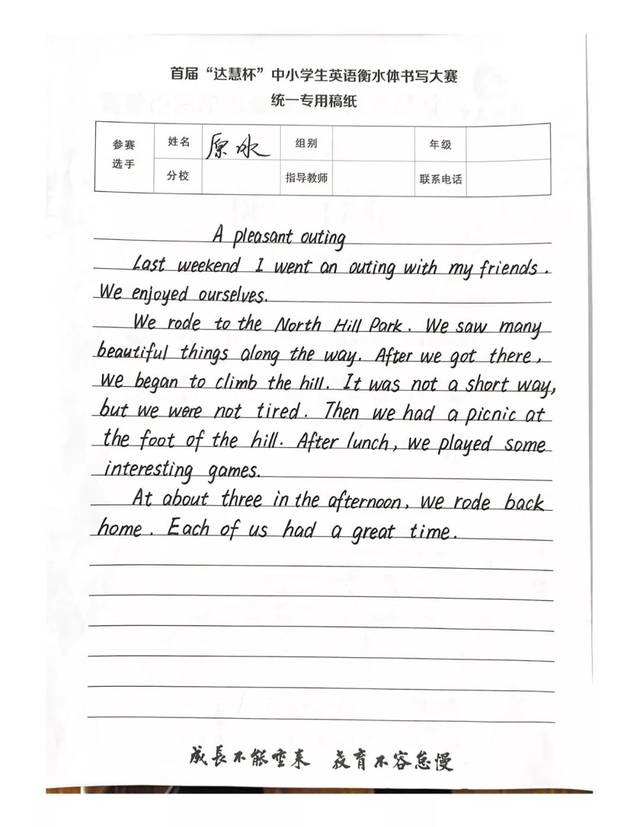 首届“达慧杯”中小学生英语衡水体书写大赛
统一专用稿纸
参赛选手 姓名 原水 组别 年级
分校 指导教师 联系电话
A pleasant outing
Last weekend I went an outing with my friends.
We enjoyed ourselves.
We rode to the North Hill Park. We saw many
beautiful things along the way. After we got there,
we began to climb the hill. It was not a short way,
but we were not tired. Then we had a picnic at
the foot of the hill. After lunch, we played some
interesting games.
At about three in the afternoon, we rode back
home. Each of us had a great time.
成長不能重来 教育不容怠慢